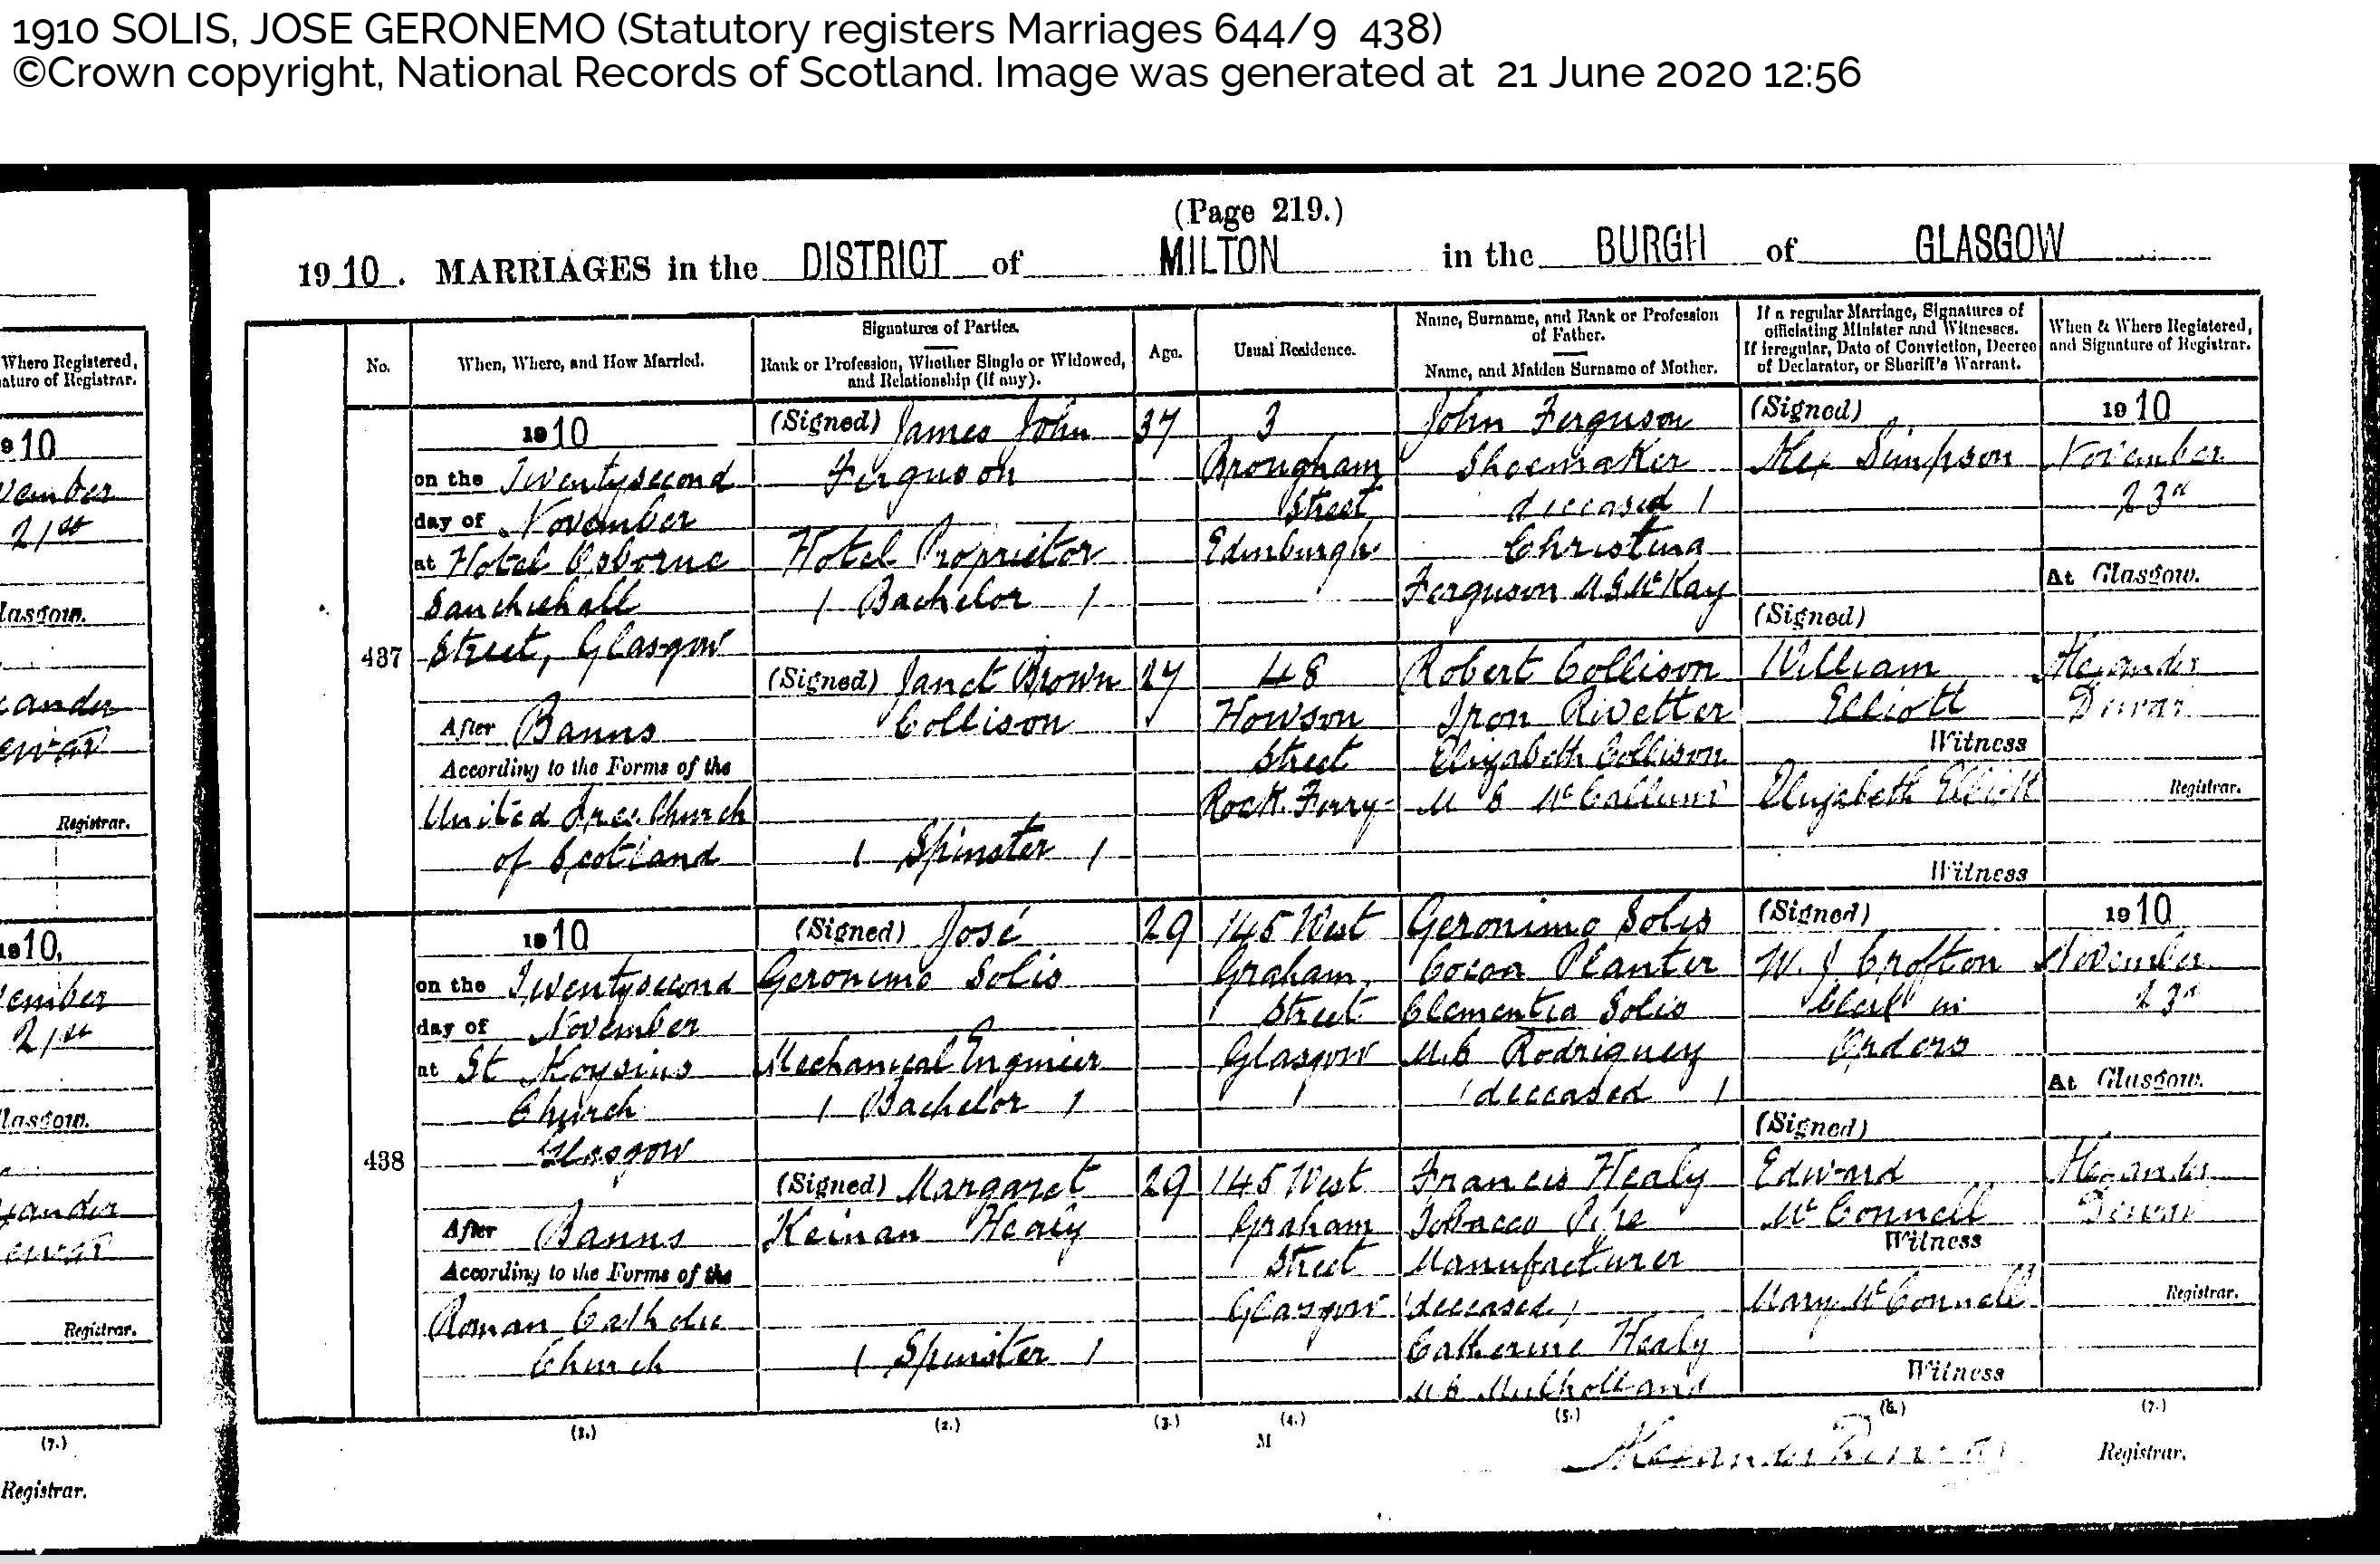 1910 SOLIS, JOSE GERONEMO (Statutory registers Marriages 644/9 438)
©Crown copyright, National Records of Scotland. Image was generated at 21 June 2020 12:56
(Page 219.)
1910. MARRIAGES in the DISTRICT of MILTON in the BURGH of GLASGOW
Where Registered,
ature of Registrar.
10
vember
21st
lasgow.
Registrar.
1910,
vember
21st
lasgow.
Registrar.
(7.)
Registrar.
No.
When, Where, and How Married.
Signatures of Parties.
Rank or Profession, Whether Single or Widowed,
and Relationship (if any).
Age.
Usual Residence.
Name, Surname, and Rank or Profession
of Father.
Name, and Maiden Surname of Mother.
If a regular Marriage, Signatures of
officiating Minister and Witnesses.
If irregular, Date of Conviction, Decree
of Declarator, or Sheriff's Warrant.
When & Where Registered,
and Signature of Registrar.
437
1910
on the Twentysecond
day of November
at Hotel Osborne
Sauchiehall
Street, Glasgow
After Banns
According to the Forms of the
United Free Church
of Scotland
(Signed) James John
Ferguson
Hotel Proprietor
( Bachelor )
(Signed) Janet Brown
Collison
( Spinster )
37
27
3
Brougham
Street
Edinburgh
48
Howson
Street
Rock Ferry
John Ferguson
Shoemaker
deceased )
Christina
Ferguson M.S. McKay
Robert Collison
Iron Rivetter
Elizabeth Collison
M S McCallum
(Signed)
Alex Simpson
(Signed)
William
Elliott
Witness
Elizabeth Elliott
Witness
1910
November
23rd
At Glasgow.
Alexander
Dewar
Registrar.
438
1910
on the Twentysecond
day of November
at St Aloysius
Church
Glasgow
After Banns
According to the Forms of the
Roman Catholic
Church
(Signed) José
Geronimo Solis
Mechanical Engineer
( Bachelor )
(Signed) Margaret
Keinan Healy
( Spinster )
29
29
145 West
Graham
Street
Glasgow
145 West
Graham
Street
Glasgow
Geronimo Solis
Cocoa Planter
Clementia Solis
M.S. Rodriguez
(deceased )
Francis Healy
Tobacco Pipe
Manufacturer
(deceased)
Catherine Healy
M.S. Mulholland
(Signed)
W. J Crofton
Clerk in
Orders
(Signed)
Edward
McConnell
Witness
Mary McConnell
Witness
1910
November
23rd
At Glasgow.
Alexander
Dewar
Registrar.
(1.) (2.) (3.) (4.) (5.) (6.) (7.)
M
Alexander Dewar Registrar.